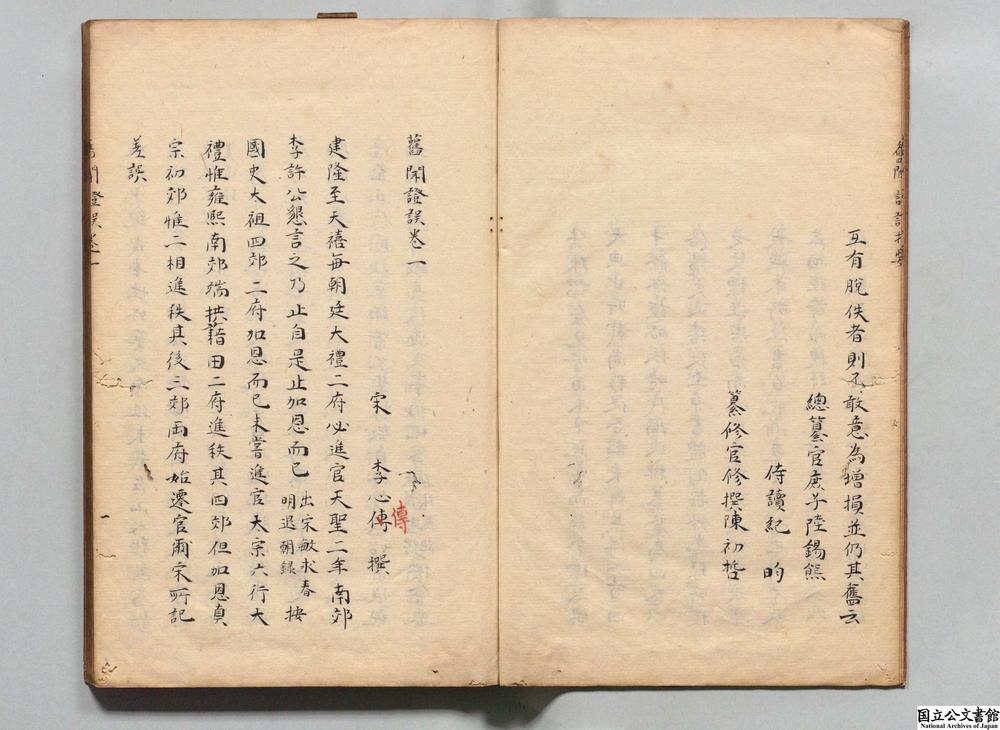 互有脫佚者則不敢意為增損並仍其舊云
總纂官庶子陸錫熊
侍讀紀昀
纂修官修撰陳初哲
舊聞證誤卷一
宋 李心傳撰
傳
建隆至天禧每朝廷大禮二府必進官天聖二年南郊
李許公懇言之乃止自是止加恩而已出宋敏求春明退朝録按
國史太祖四郊二府加恩而已未嘗進官太宗六行大
禮惟雍熙南郊端拱藉田二府進秩其四郊但加恩真
宗初郊惟二相進秩其後三郊兩府始遷官爾宋所記
差誤
舊聞證誤卷一
国立公文書館
National Archives of Japan